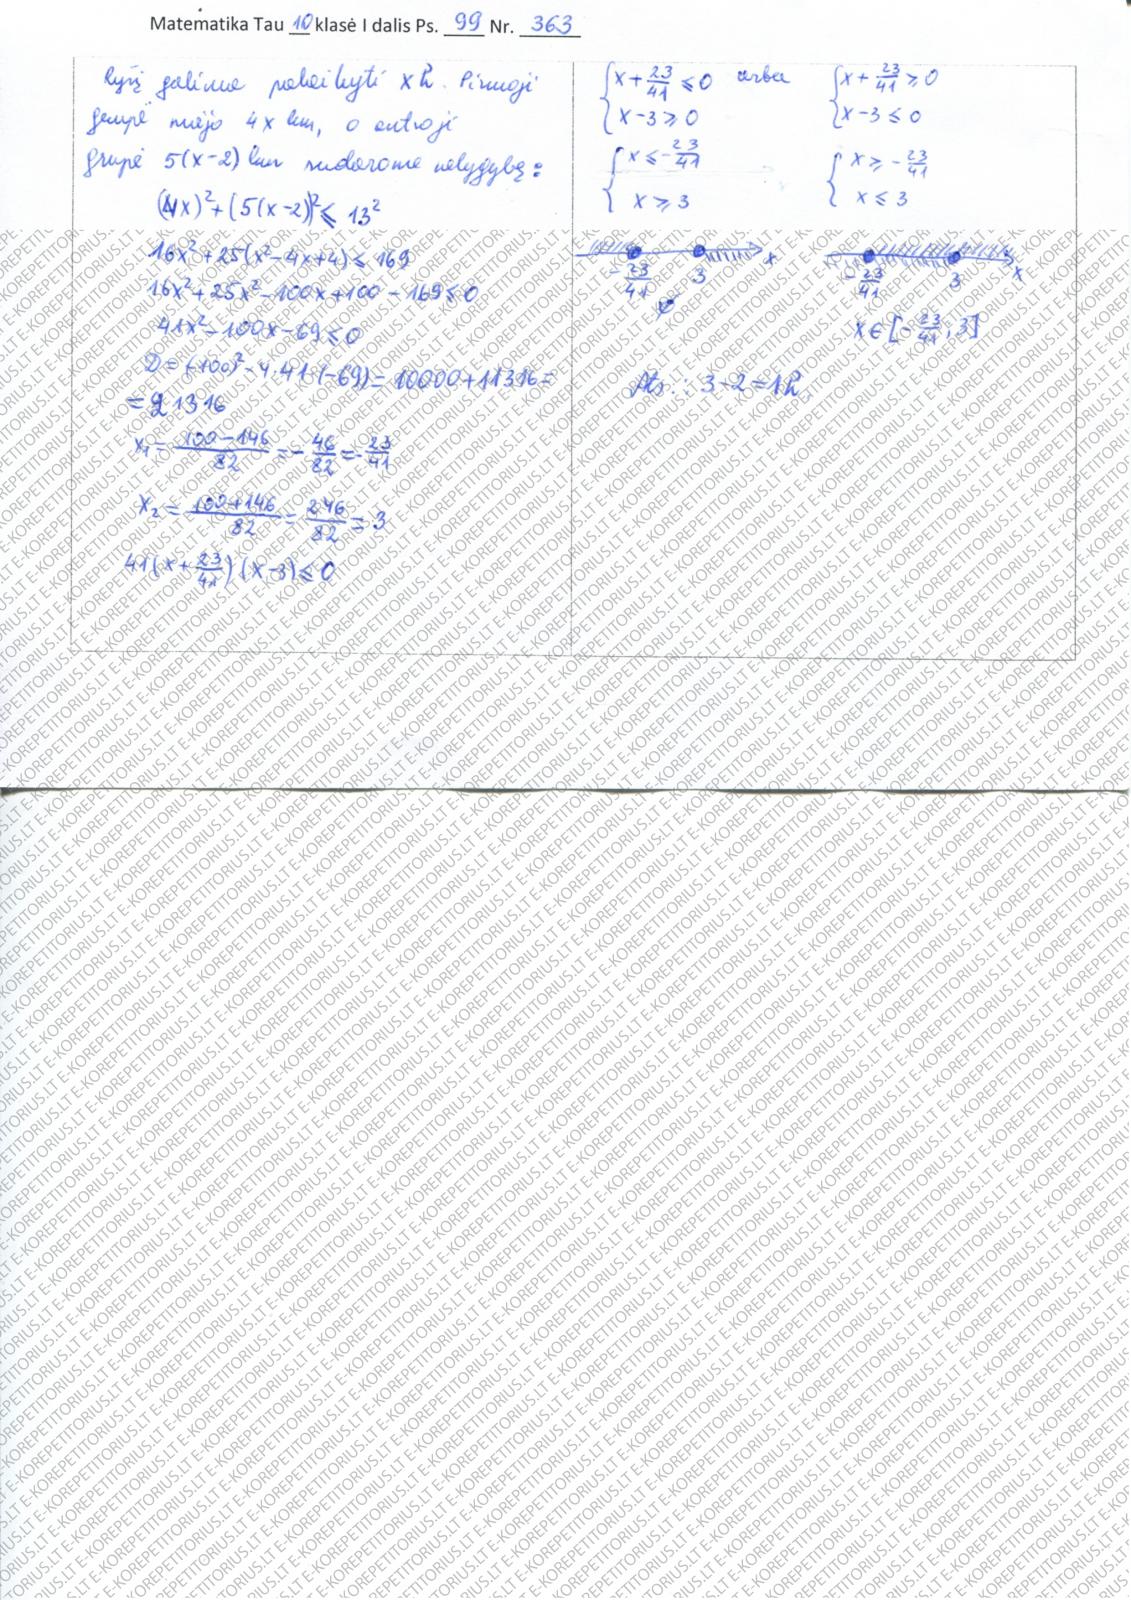 Matematika Tau 10 klasė I dalis Ps. 99 Nr. 363
Ryšį galima palaikyti x h. Pirmoji
grupė nuėjo 4x km, o antroji
grupė 5(x-2) km sudarome nelygybę:
(4x)² + (5(x-2))² ≤ 13²
16x² + 25(x² - 4x + 4) ≤ 169
16x² + 25x² - 100x + 100 - 169 ≤ 0
41x² - 100x - 69 ≤ 0
D = (-100)² - 4·41·(-69) = 10000 + 11316 =
= 21316
x₁ = (100-146)/82 = -46/82 = -23/41
x₂ = (100+146)/82 = 246/82 = 3
41(x + 23/41)(x-3) ≤ 0
{x + 23/41 ≤ 0 arba {x + 23/41 ≥ 0
x-3 ≥ 0 x-3 ≤ 0
{x ≤ -23/41 {x ≥ -23/41
x ≥ 3 x ≤ 3
-23/41 3 x -23/41 3 x
x ∈ [-23/41; 3]
Ats.: 3-2 = 1 h.
E-KOREPETITORIUS.LT